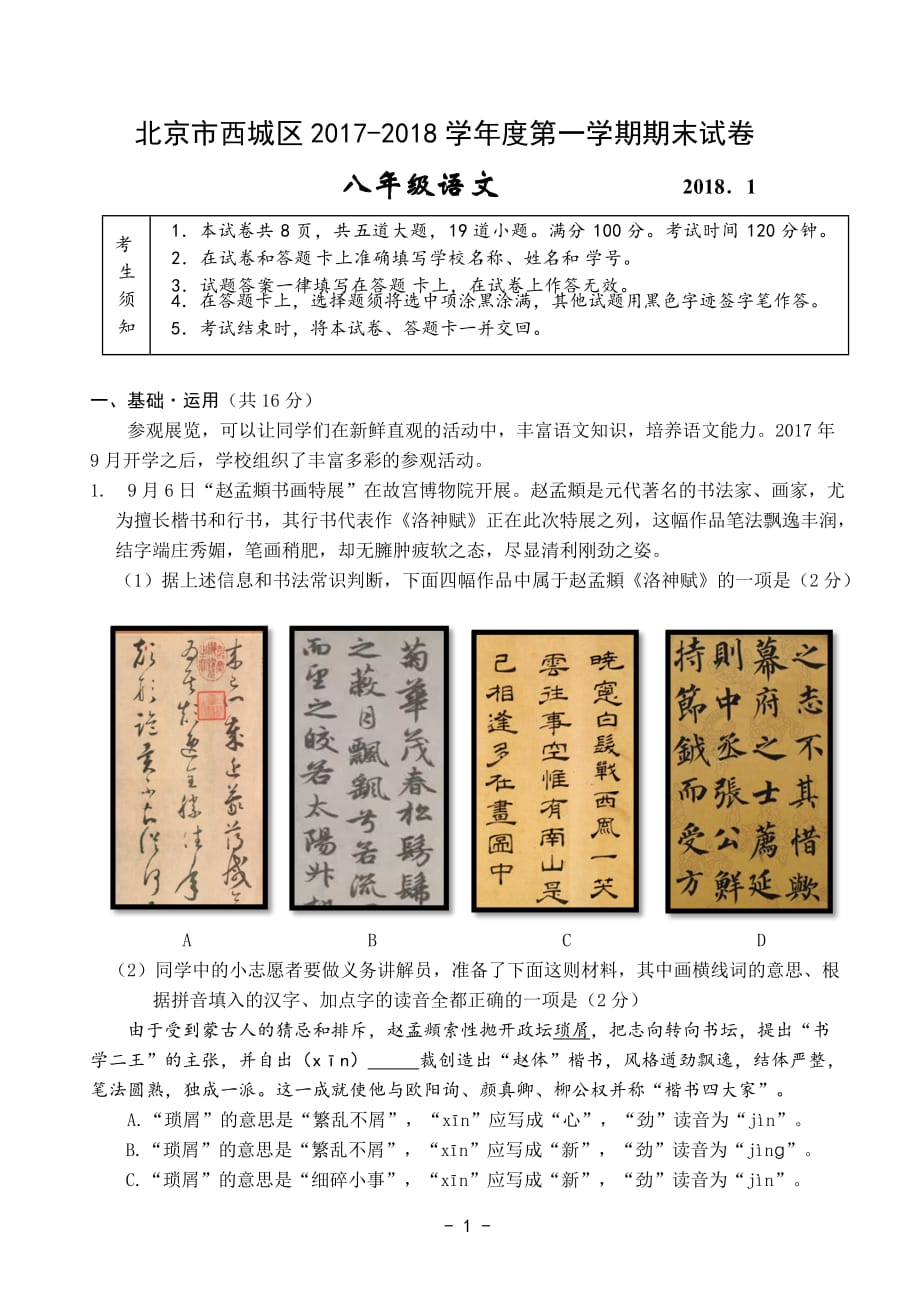 北京市西城区 2017-2018 学年度第一学期期末试卷
八年级语文 2018．1
考生须知
1．本试卷共 8 页，共五道大题，19 道小题。满分 100 分。考试时间 120 分钟。
2．在试卷和答题卡上准确填写学校名称、姓名和学号。
3．试题答案一律填写在答题卡上，在试卷上作答无效。
4．在答题卡上，选择题须将选中项涂黑涂满，其他试题用黑色字迹签字笔作答。
5．考试结束时，将本试卷、答题卡一并交回。
一、基础·运用（共 16 分）
参观展览，可以让同学们在新鲜直观的活动中，丰富语文知识，培养语文能力。2017 年
9 月开学之后，学校组织了丰富多彩的参观活动。
1. 9 月 6 日“赵孟頫书画特展”在故宫博物院开展。赵孟頫是元代著名的书法家、画家，尤
为擅长楷书和行书，其行书代表作《洛神赋》正在此次特展之列，这幅作品笔法飘逸丰润，
结字端庄秀媚，笔画稍肥，却无臃肿疲软之态，尽显清利刚劲之姿。
（1）据上述信息和书法常识判断，下面四幅作品中属于赵孟頫《洛神赋》的一项是（2 分）
菊華茂春松髣髴
之蔽月飄飖兮若流
而望之皎若太陽
曉窓白髮戰西風一笑
雲往事空惟有南山是
已相逢多在畫圖中
之志不其惜歟
幕府之士薦延
則中丞張公鮮
持節鉞而受方
A B C D
（2）同学中的小志愿者要做义务讲解员，准备了下面这则材料，其中画横线词的意思、根
据拼音填入的汉字、加点字的读音全都正确的一项是（2 分）
由于受到蒙古人的猜忌和排斥，赵孟頫索性抛开政坛琐屑，把志向转向书坛，提出“书
学二王”的主张，并自出（xīn）_____裁创造出“赵体”楷书，风格遒劲飘逸，结体严整，
笔法圆熟，独成一派。这一成就使他与欧阳询、颜真卿、柳公权并称“楷书四大家”。
A.“琐屑”的意思是“繁乱不屑”，“xīn”应写成“心”，“劲”读音为“jìn”。
B.“琐屑”的意思是“繁乱不屑”，“xīn”应写成“新”，“劲”读音为“jìng”。
C.“琐屑”的意思是“细碎小事”，“xīn”应写成“新”，“劲”读音为“jìn”。
- 1 -